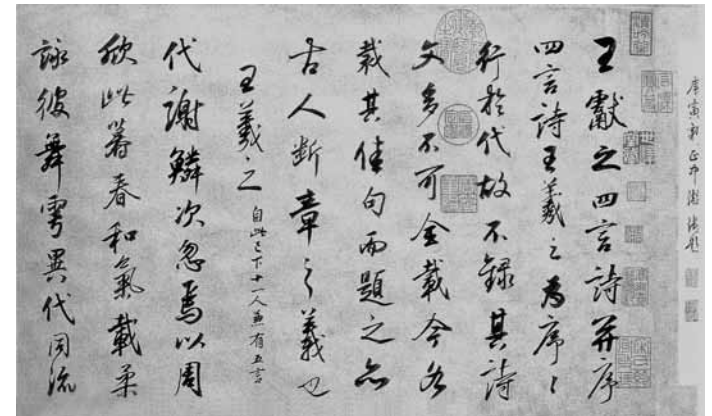 王獻之四言詩并序
四言詩王羲之爲序序
行於代故不錄其詩
文多不可全載今各
裁其佳句而題之亦
古人斷章之義也
王羲之 自此已下十一人兼有五言
代謝鱗次忽焉以周
欣此暮春和氣載柔
詠彼舞雩異代同流